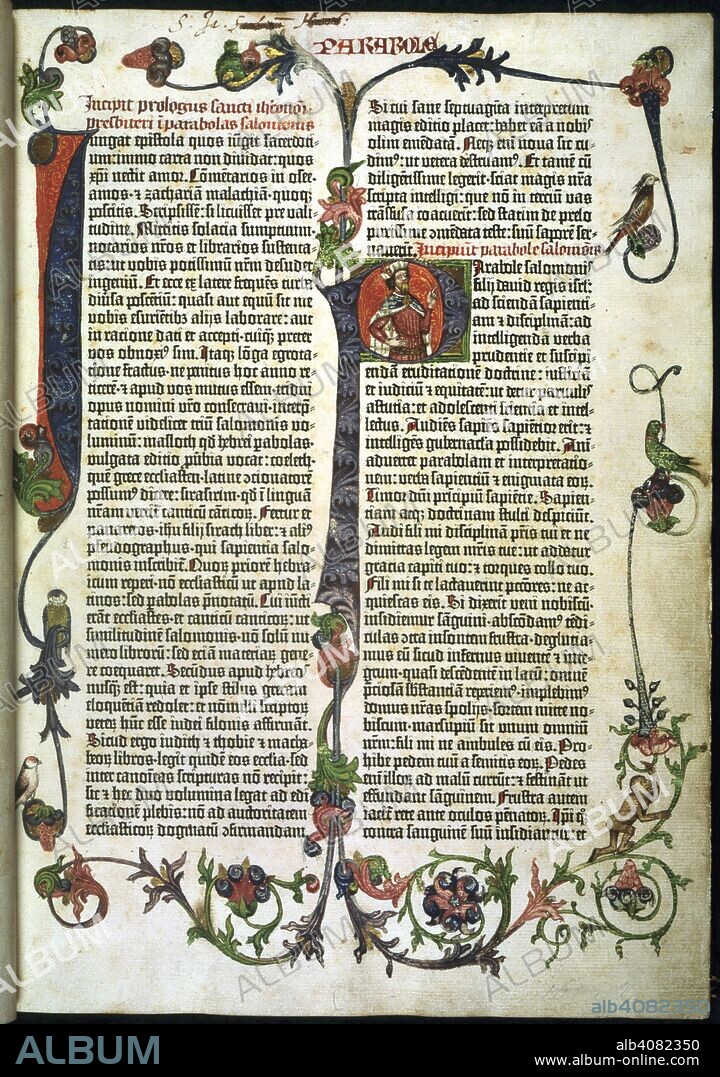 PARABOLE
Incipit prologus sancti iheronimi
presbiteri ī parabolas salomonis
Iungat epistola quos iūgit sacerdotiū:
immo carta non dividat: quos
xp̄i nectit amor. Cōmētarios in osee·
amos· & zachariam malachiā· quoq;
poscitis. Scripsissē: si licuisset pre vali-
tudine. Mittitis solacia sumptuum·
notarios nr̄os et librarios sustenta-
tis: ut vobis potissimū nr̄m desudet
ingeniū. Et ecce ex latere frequēs turba
diūsa poscētiū: quasi aut equū sit me
vobis esuriētibs alijs laborare: aut
in ratione dati et accepti· cuiq; preter
vos obnoxiꝰ sim. Itaq; lōga egrota-
tione fractus· ne penitus hoc anno re-
ticerē· & apud vos mutus essem· tridui
opus nomini vr̄o consecravi· interp̄-
tationem videlicet triū salomonis vo-
luminū: malloth qd̄ hebrei pabolas·
vulgata editio ꝓūbia vocat: coeleth·
quē grece ecclīasten· latine ↄcionatorē
possumꝰ dicere: sirasirim· qd̄ ī linguā
nr̄am vertit̄ canticū cāticorꝝ. Fertur et
panaretos· ihū filij sirach liber: & aliꝰ
pseudographus· qui sapientia salo-
monis inscribit̄. Quorꝝ priorē hebra-
icum reperi· nō ecclīasticū ut apud la-
tinos: sed pabolas p̄notatū. Cui iūcti
erāt ecclīastes· et canticū canticorꝝ: ut
similitudinē salomonis· nō solū nu-
mero librorū: sed eciā materiarꝝ gene-
re coequaret. Secūdus apud hebreos
nusq̄ est: quia et ipse stilus grecam
eloquētiā redolet: et nōnulli scriptorꝝ
veterꝝ hūc esse iudei filonis affirmāt.
Sicud ergo iudith & thobie & macha-
beorꝝ libros· legit quidē eos ecclīa· sed
inter canonicas scripturas nō recipit:
sic & hec duo volumina legat ad edi-
ficationē plebis: nō ad auctoritatem
ecclīasticorꝝ dogmatū ↄfirmandam.
Si cui sane septuaginta interpretum
magis editio placet: habet eā a nobis
olim emēdatā. Neq; enī nova sic cu-
dimꝰ: ut vetera destruamꝰ. Et tamē cū
diligētissime legerit· sciat magis nr̄a
scripta intelligi: que nō in terciū vas
trāsfusa coacuerīt: sed statim de prelo
purissime ↄmēdata teste: suū saporē ser-
vaverīt. Incipiūt parabole salomonis
Parabole salomonis
filij david regis isrl̄:
ad sciendā sapienti-
am & disciplinā: ad
intelligendā verba
prudentie et suscipi-
endā eruditationē doctrine: iusticiā
et iudiciū & equitatē: ut detur parvulis
astutia: et adolescenti sciencia et intel-
lectus. Audiēs sapiēs sapiētior erit: &
intelligēs gubernacla possidebit. Ani-
advertet parabolam et interpretatio-
nem: verba sapientiū & enigmata eorꝝ.
Timor dn̄i prīcipiū sapiētie. Sapien-
tiam atq; doctrinam stulti despiciūt.
Audi fili mi disciplinā pr̄is tui et ne
dimittas legem mr̄is tue: ut addatur
gracia capiti tuo: & torques collo tuo.
Fili mi si te lactaverint pccōres: ne ac-
quiescas eis. Si dixerīt veni nobiscū·
insidiemur sāguini· abscōdamꝰ tēdi-
culas ↄtra insontem frustra· deglutia-
mus eū sicud infernus viventē & inte-
grum· quasi descēdentē in lacū: omnē
p̄ciosā sb̄stantiā reperiemꝰ· implebimꝰ
domus nr̄as spolijs· sortem mitte no-
biscum· marsupiū sit unum omniū
nr̄m: fili mi ne ambules cū eis. Pro-
hibe pedem tuū a semitis eorꝝ. Pedes
enī illorꝝ ad malū currūt: & festināt ut
effundant sāguinem. Frustra autem
iacit̄ rete ante oculos pēnatorꝝ. Ip̄i q̄;
contra sanguinē suū insidiantur: et
ALBUM
alb4082350
www.album-online.com